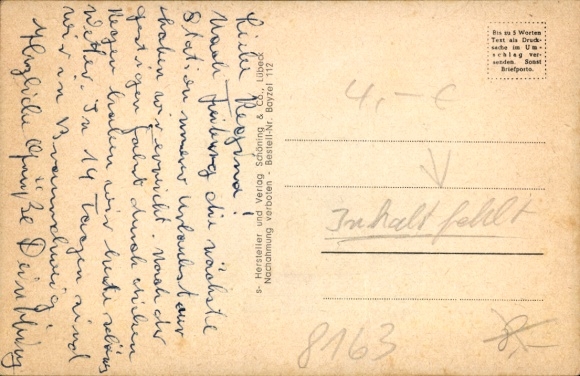 Liebe Regina!
Nach Freiburg die nächste
Station unserer Urlaubstour
haben wir erreicht. Nach der
gestrigen Fahrt durch dichten
Regen haben wir heute schönes
Wetter. In 14 Tagen sind
wir in Braunschweig
Herzliche Grüße Dein
s- Hersteller und Verlag Schöning & Co., Lübeck
Nachahmung verboten - Bestell-Nr. Bayzel 112
Bis zu 5 Worten
Text als Druck-
sache im Um-
schlag ver-
senden. Sonst
Briefporto.
4,- €
Inhalt fehlt
8163
8,-